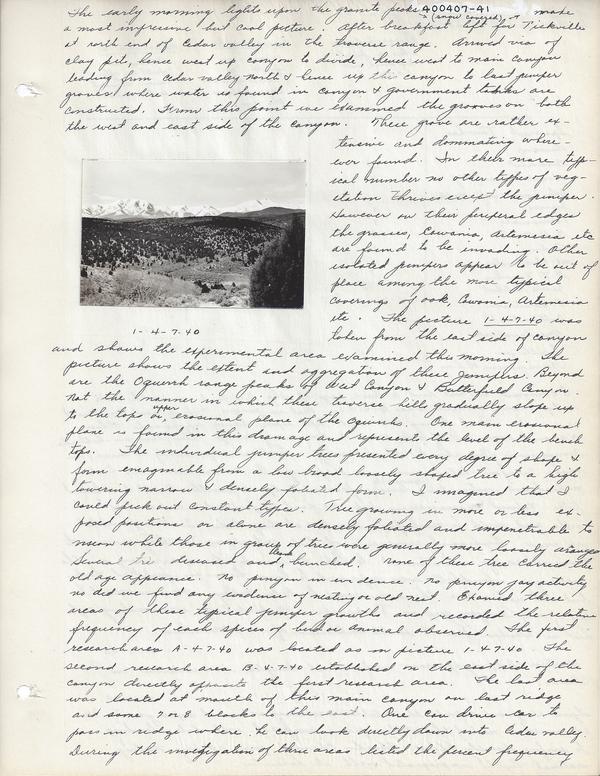 The early morning lights upon the granite peaks 400407-41 made
(snow covered)
a most impresive but cool picture. After breakfast left for Tickville
at north end of Cedar valley in the traverse range. Arrived via of
clay pit, hence west up canyon to divide, hence west to main canyon
leading from Cedar valley north & hence up the canyon to last juniper
groves where water is found in canyon & government tanks are
constructed. From this point we examined the grooves on both
the west and east side of the canyon. These grove are rather ex-
tensive and dominating where-
ever found. In their more typ-
ical number no other types of veg-
etation thrives except the juniper.
However on their periperal edges
the grasses, Cowania, Artemesia etc
are found to be invading. Other
isolated junipers appear to be out of
place among the more typical
coverings of oak, Cowania, Artemesia
etc. The picture 1-4-7-40 was
taken from the east side of canyon
1-4-7-40
and shows the experimental area examined this morning. The
picture shows the extent and aggregation of these junipers. Beyond
are the Oquirrh range peaks of West Canyon & Butterfield Canyon.
Not the manner in which these traverse hills gradually slope up
to the top or upper erosional plane of the Oquirrhs. One main erosional
plane is found in this drainage and represents the level of the bench
tops. The individual juniper trees presented every degree of shape &
form imaginable from a low broad loosely shaped tree to a high
towering narrow & densely foliated form. I imagined that I
could pick out constant types. Tree growing in more or less ex-
posed positions or alone are densely foliated and impenetrable to
mean while those in group of trees were generally more loosely aranged
Several tre diseased and dead, bunched. None of these tree carried the
old age appeance. No pinyon in evidence. No pinyon jay activity
no did we find any evidence of nesting or old nest. Examed three
areas of these typical juniper growths and recorded the relative
frequency of each spices of bird or animal observed. The first
research area A-4-7-40 was located as in picture 1-4-7-40. The
second research area B-4-7-40 established on the east side of the
canyon directly opposite the first research area. The last area
was located at mouth of this main canyon on last ridge
and some 7 or 8 blocks to the east. One can drive car to
pass in ridge where he can look directly down into Cedar valley.
During the investigation of three areas listed the percent frequency